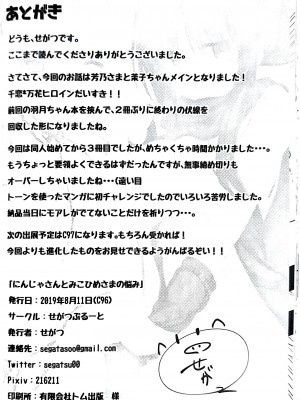 あとがき
どうも、せがつです。
ここまで読んでくださりありがとうございました。
さてさて、今回のお話は芳乃さまと茉子ちゃんメインとなりました！
千恋*万花ヒロインだいすき！！
前回の羽月ちゃん本を挟んで、2冊ぶりに終わりの伏線を
回収した形になりましたね。
今回は同人始めてから3冊目でしたが、めちゃくちゃ時間かかりました・・・。
もうちょっと要領よくできるはずだったんですが、無事締め切りも
オーバーしちゃいましたね・・・(遠い目
トーンを使ったマンガに初チャレンジでしたのでいろいろ苦労しました。
納品当日にモアレがでてないことだけを祈りつつ・・・。
次の出展予定はC97になります。もちろん受かれば！
今回よりも進化したものをお見せできるようがんばるぞい！！
「にんじゃさんとみこひめさまの悩み」
発行日：2019年8月11日(C96)
サークル：せがつぶるーと
発行者：せがつ
連絡先：segatasoo@gmail.com
Twitter：segatsu00
Pixiv：216211
印刷所：有限会社トム出版 様
せがつ